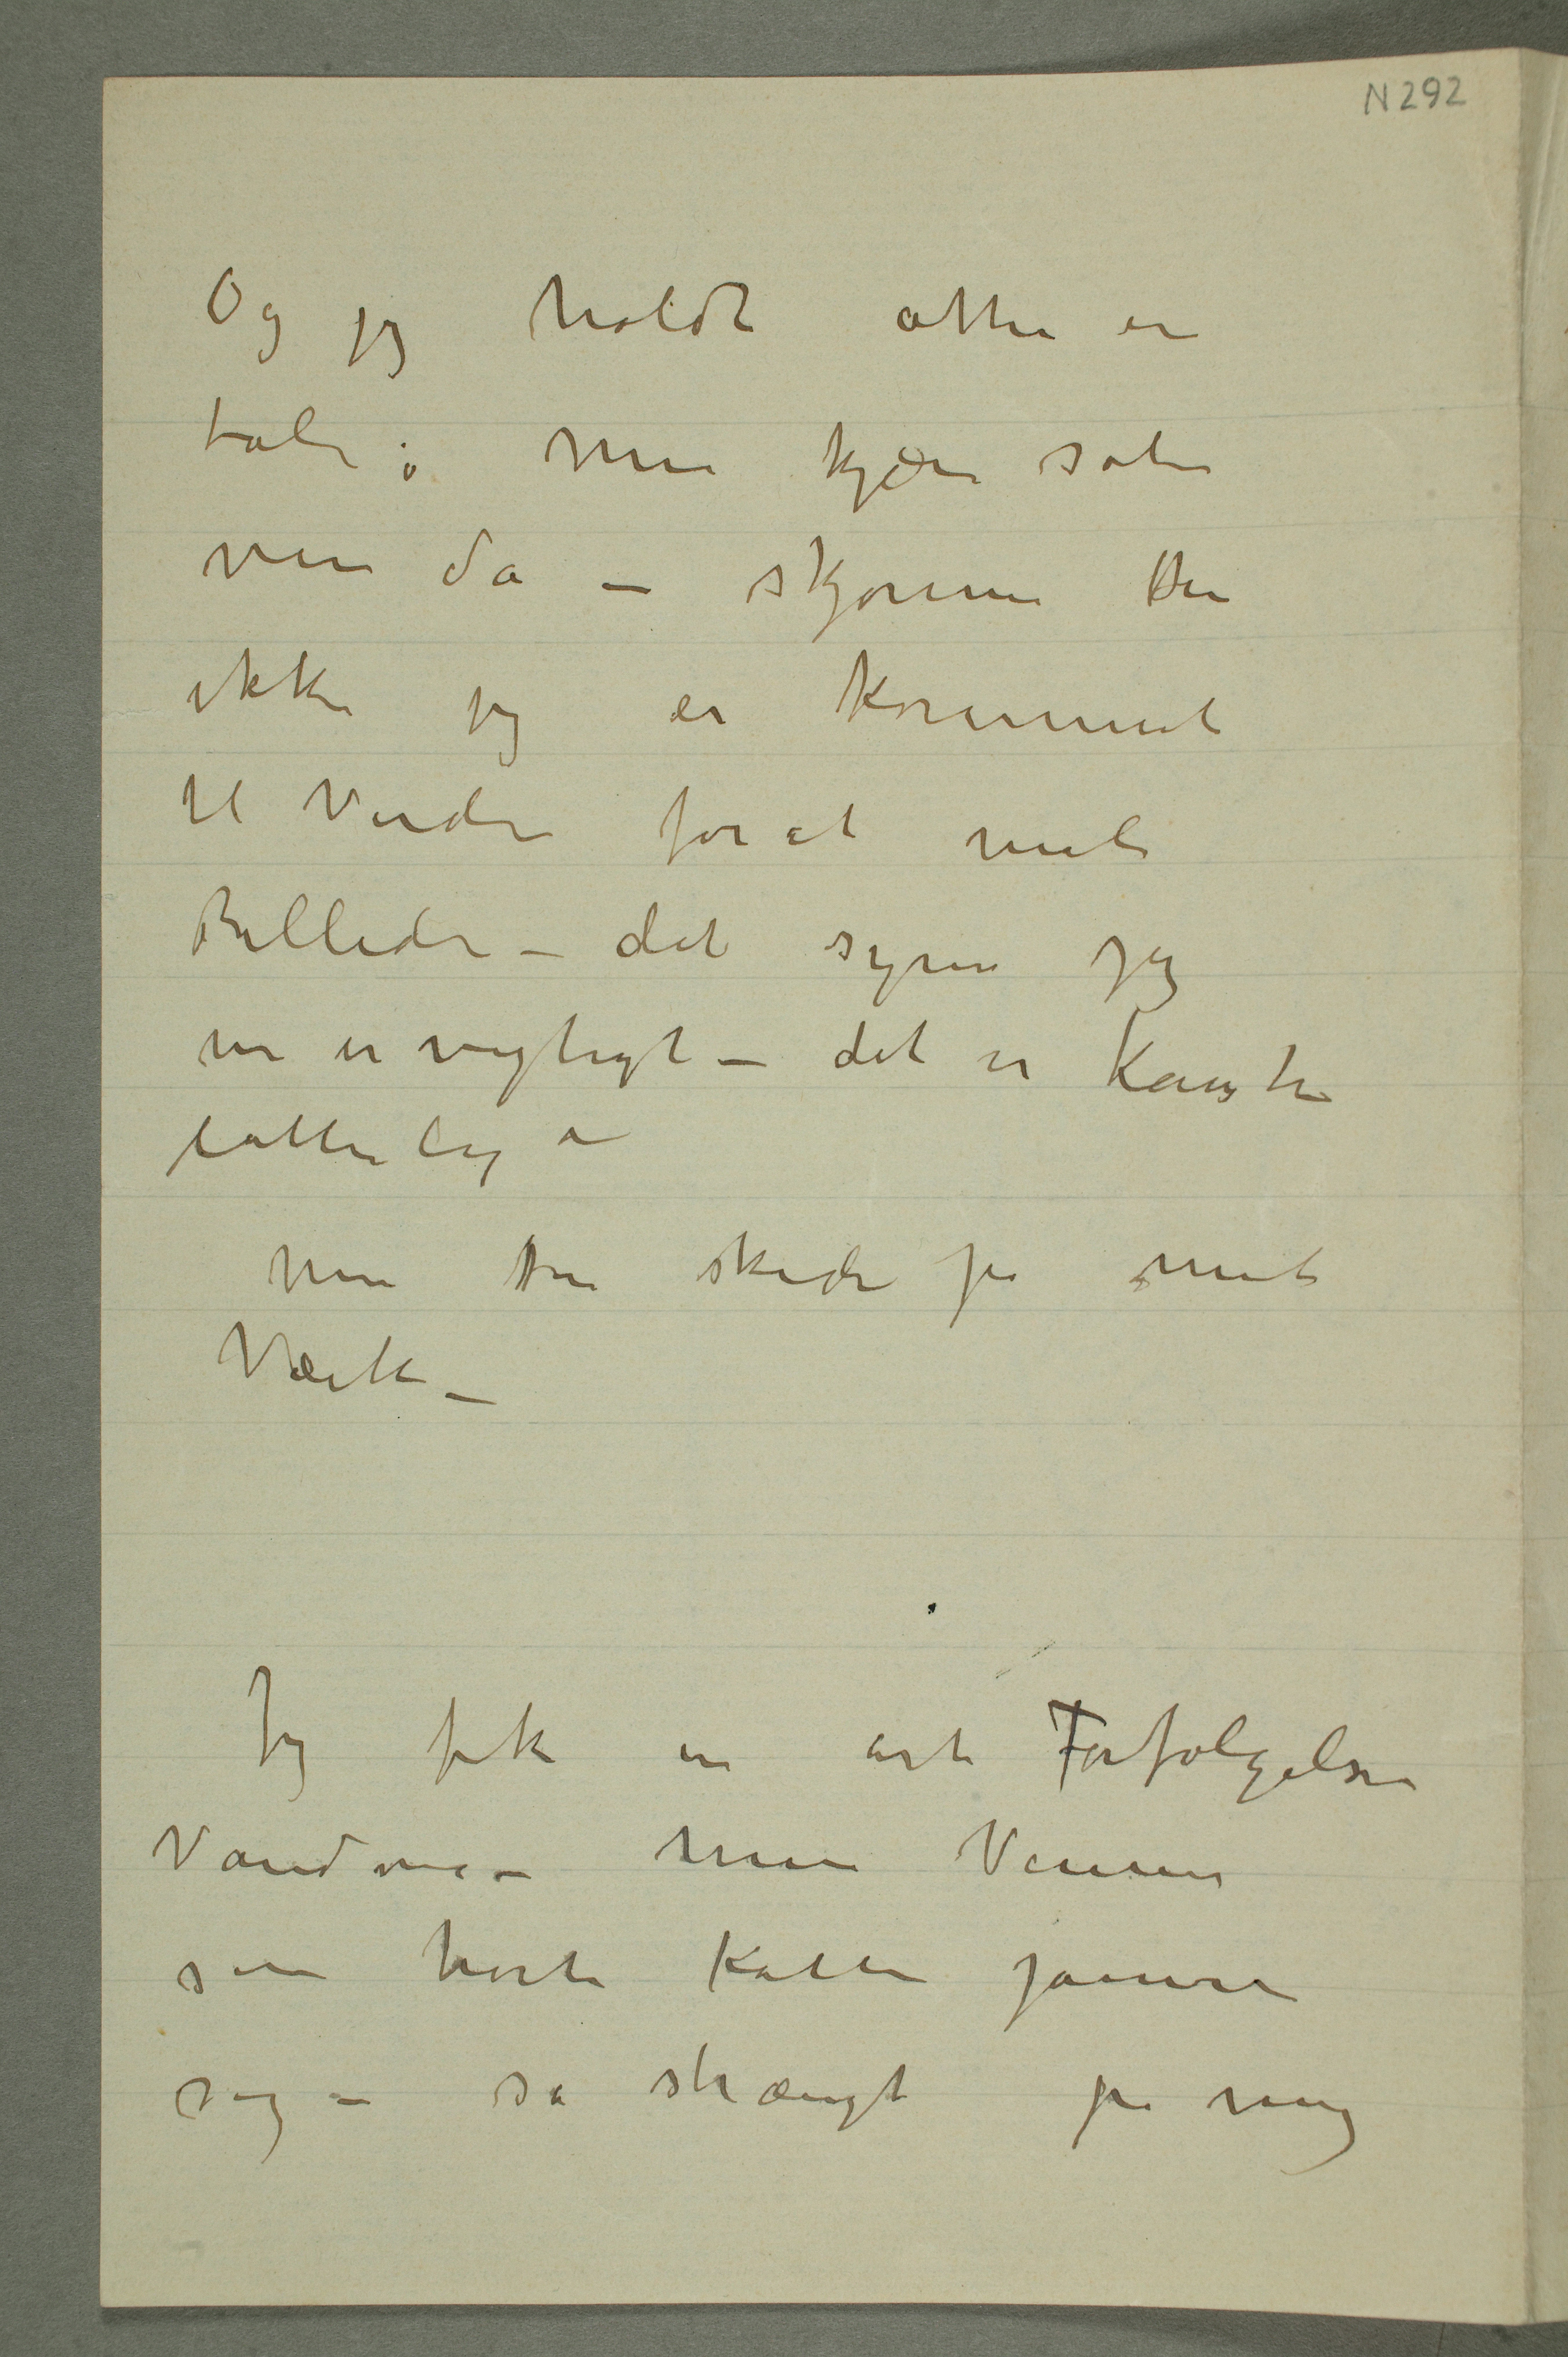 N 292
Og jeg holdt atter en
tale: Men kjære søte
ven da – skjønner Du
ikke jeg er kommet
til Verden for at male
Billeder – det synes jeg
nu er vigtigt – det er kanske
latterlig –
Men Du skeder på mit
Værk –
Jeg fik en art Forfølgelses
Vandvid – Mine Venner
som hørte Katten jamre
sig – så strængt på mig